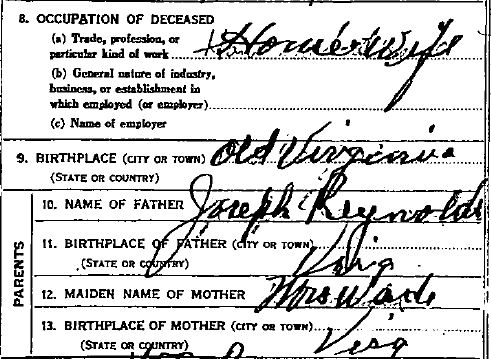 8. OCCUPATION OF DECEASED
(a) Trade, profession, or
particular kind of work Housewife
(b) General nature of industry,
business, or establishment in
which employed (or employer)
(c) Name of employer
9. BIRTHPLACE (CITY OR TOWN) Old Virginia
(STATE OR COUNTRY)
PARENTS
10. NAME OF FATHER Joseph Reynolds
11. BIRTHPLACE OF FATHER (CITY OR TOWN)
(STATE OR COUNTRY) Virg
12. MAIDEN NAME OF MOTHER Mrs Wade
13. BIRTHPLACE OF MOTHER (CITY OR TOWN)
(STATE OR COUNTRY) Virg